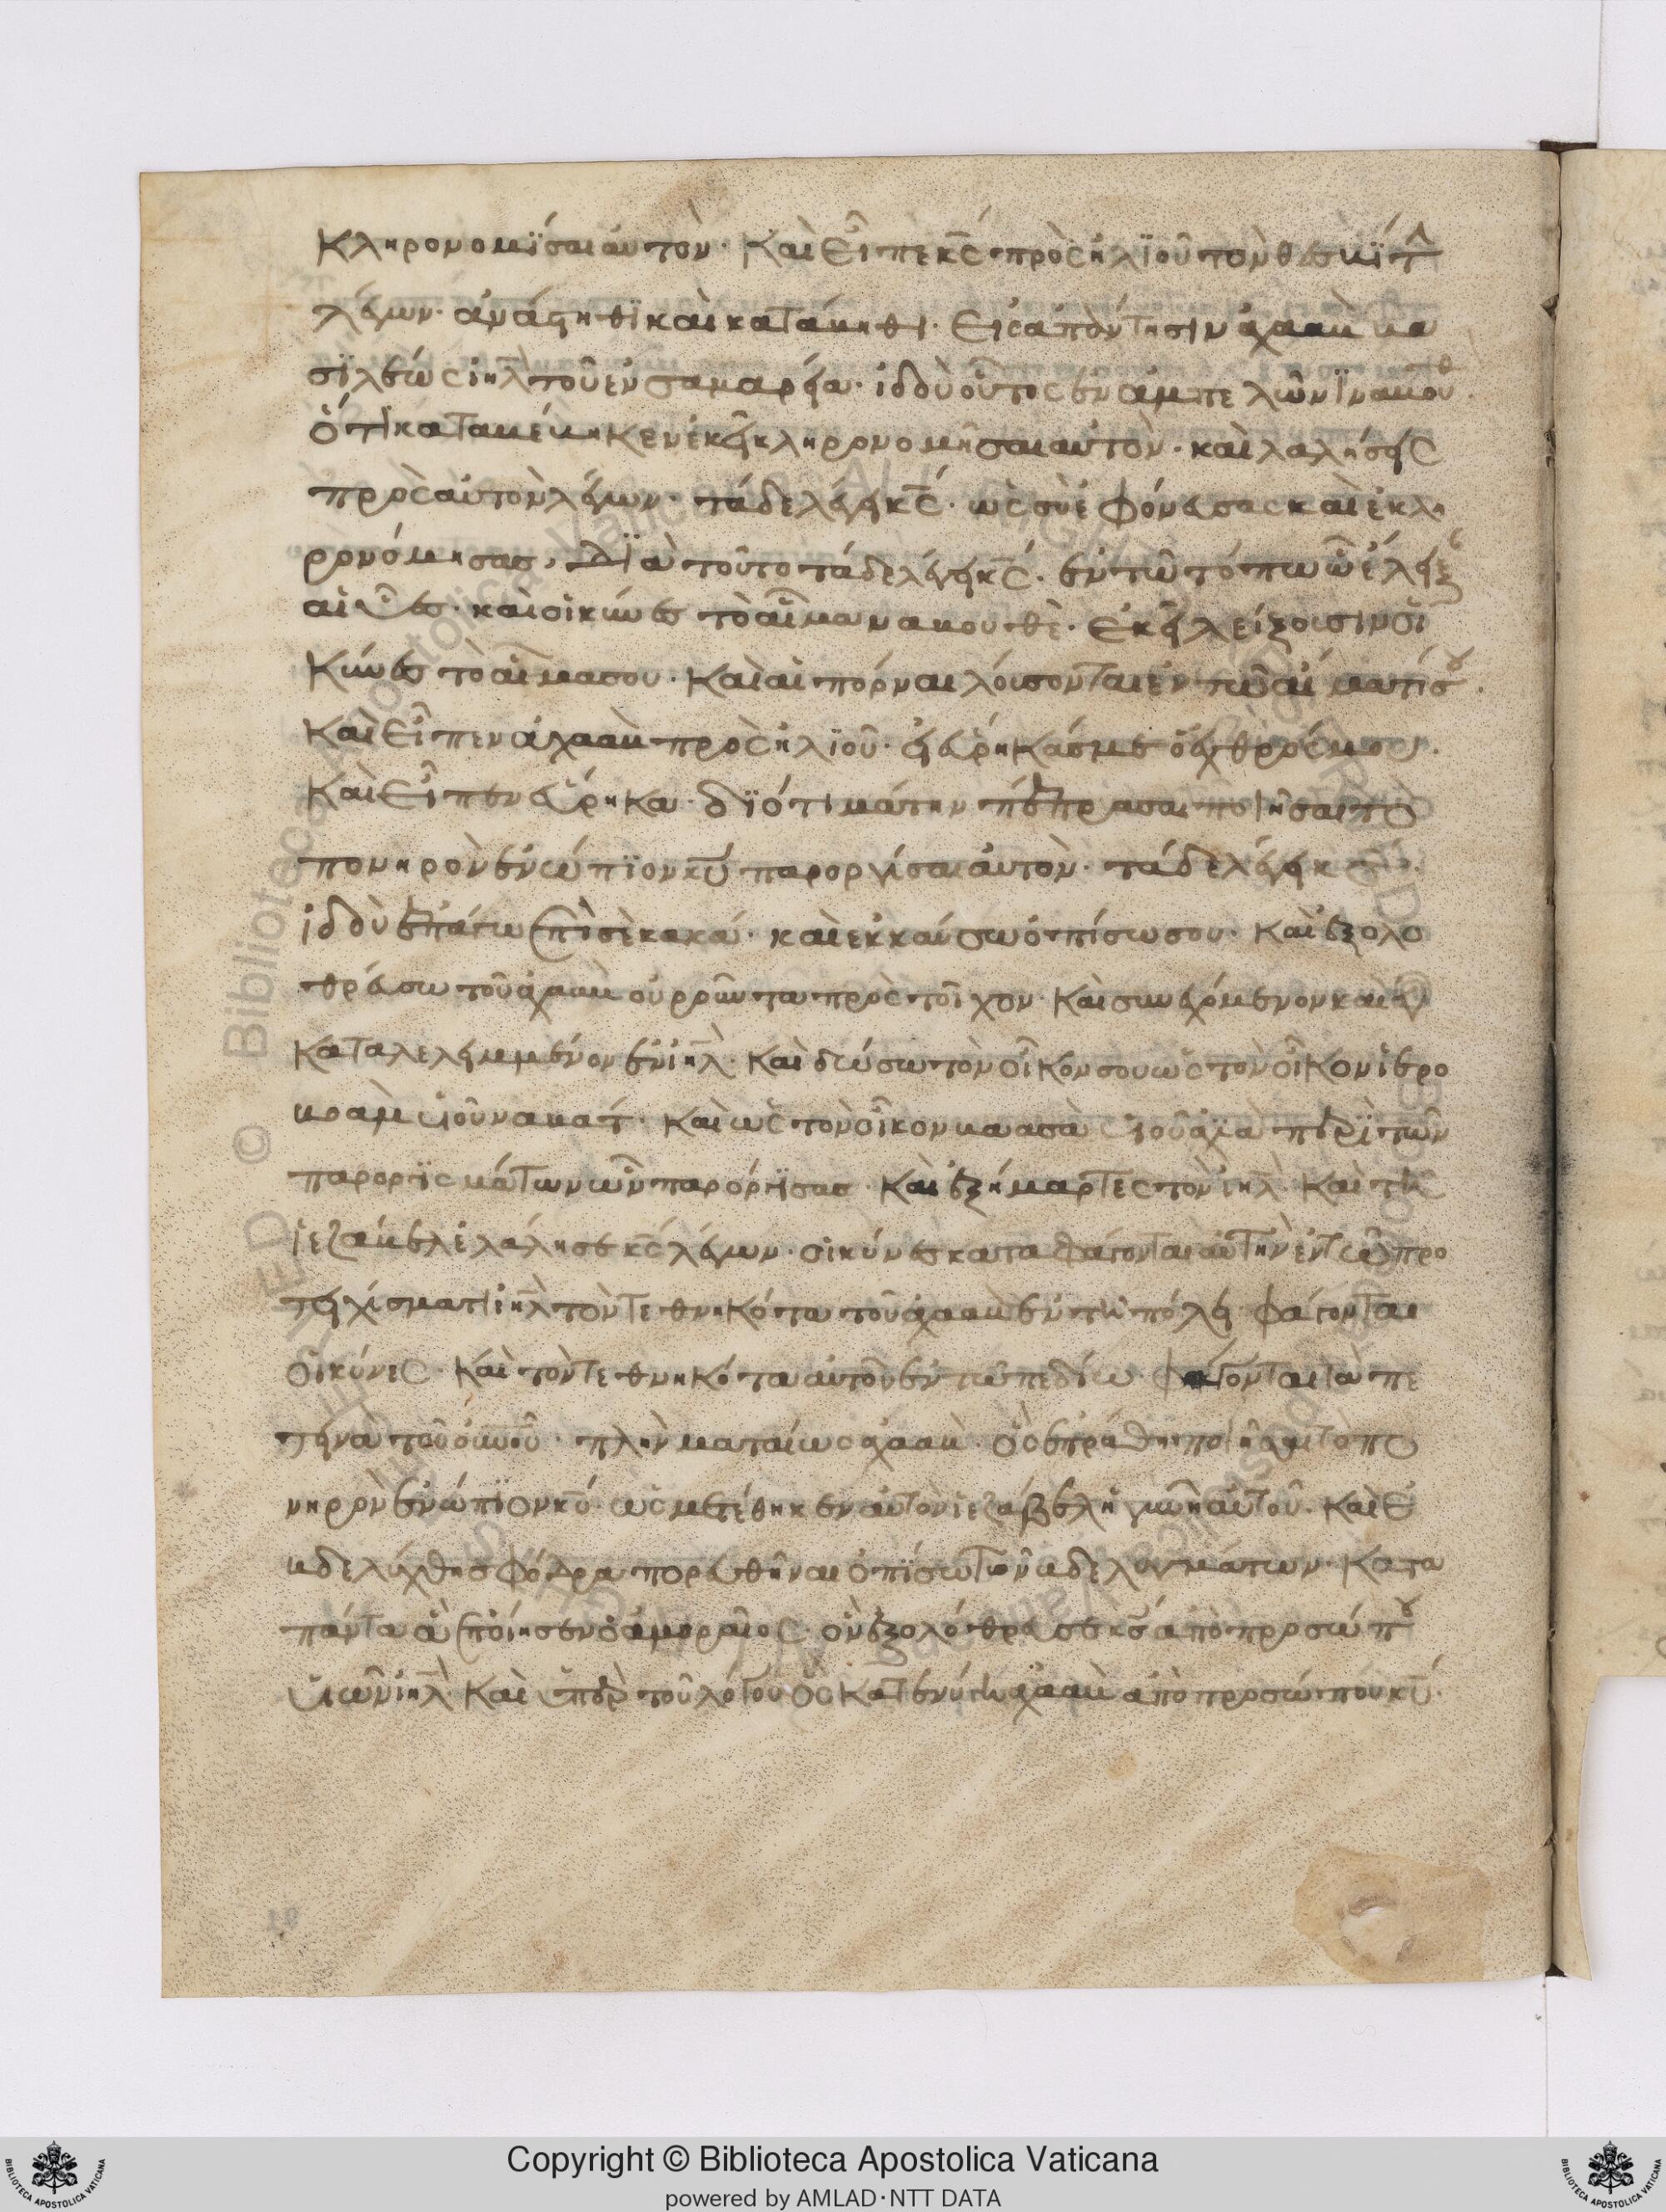 κληρονομῖσαι ἀυτὸν· Καὶ εἶπεκς πρὸς ἠλϊοῦ τὸν θεσβίτ
λέγων· ἀνάστηθϊ καὶ κατάβηθι· Εἰς ἀπάντησιν ἀχαὰβ βα
σϊλέως ἰηλ τοῦ ἐν σαμαρεία· ἰδοὺ οὗτος ἐν ἀμπελῶνϊ ναβουθ
ὅτι καταβέβηκεν ἐκεῖ κληρονομῆσαι αὐτὸν· καὶ λαλήσεις
πρὸς αὐτὸν λέγων· τάδε λέγει κς· ὡς σὺ ἐφόνευσας καὶ ἐκλη
ρονόμησας, Δϊὰ τοῦτο τάδε λέγει κς· ἐν τῶ τόπω ὧ ἔλειξ
αἱ ὕες· καὶ οἱ κύνες τὸ αἷμα ναβουθὲ· Ἐκεῖ λείξουσιν οἱ
κύνες τὸ αἷμα σου· Καὶ αἱ πόρναι λούσονται ἐν τῶ αἵματί σου·
Καὶ εἶπεν ἀχαὰβ πρὸς ἠλϊοῦ· εἰ εὕρηκάς με ὁ ἐχθρός μου·
Καὶ εἶπεν εὕρηκα· δϊότι μάτην πέπρασαι ποιῆσαι τὸ
πονηρὸν ἐνώπϊον κυ παροργίσαι ἀυτὸν· τάδε λέγει κς·
ἰδοὺ ἐπάγω ἐπὶ σὲ κακά· καὶ ἐκκαύσω ὀπίσω σου· Καὶ ἐξολο
θρεύσω τοῦ ἀχαὰβ οὐροῦντα πρὸς τοῖχον· Καὶ συνεχόμενον καὶ ἐγ
καταλελειμμένον ἐν ἰηλ· Καὶ δώσω τὸν οἶκον σου ὡς τὸν οἶκον ἱερο
βοὰμ υἱοῦ ναβατ· Καὶ ὡς τὸν οἶκον βαασὰ υἱοῦ ἀχϊὰ περὶ τῶν
παροργϊσμάτων ὧν παρόργϊσας· Καὶ ἐξήμαρτες τὸν ἰηλ· Καὶ τῆ
ἰεζάβελ ἐλάλησε κς λέγων· οἱ κύνες καταφάγονται αὐτὴν ἐν τῶ προ
τειχίσματι ἰηλ τὸν τεθνηκότα τοῦ ἀχαὰβ ἐν τῆ πόλει φάγονται
οἱ κύνες· Καὶ τὸν τεθνηκότα αὐτοῦ ἐν τῶ πεδίω φάγονται τὰ πε
τεινὰ τοῦ οὐνοῦ· πλὴν ματαίως ἀχαὰβ· ὃς ἐπράθη ποιῆσαι τὸ πο
νηρὸν ἐνώπϊον κυ· ὡς μετέθηκεν αὐτὸν ἰεζάβελ ἡ γυνὴ αὐτοῦ· Καὶ ἐ
βδελύχθη σφόδρα πορευθῆναι ὀπϊσω τῶν βδελυγμάτων· Κατὰ
πάντα ἃ ἐποίησεν ὁ ἀμορραῖος· ὃν ἐξολόθρευσε κς ἀπὸ προσώπου
ὑιῶν ἰηλ· Καὶ ὑπὲρ τοῦ λόγου ὃς κατενύγη ἀχαὰβ ἀπὸ προσώπου κυ·
Copyright © Biblioteca Apostolica Vaticana
powered by AMLAD·NTT DATA